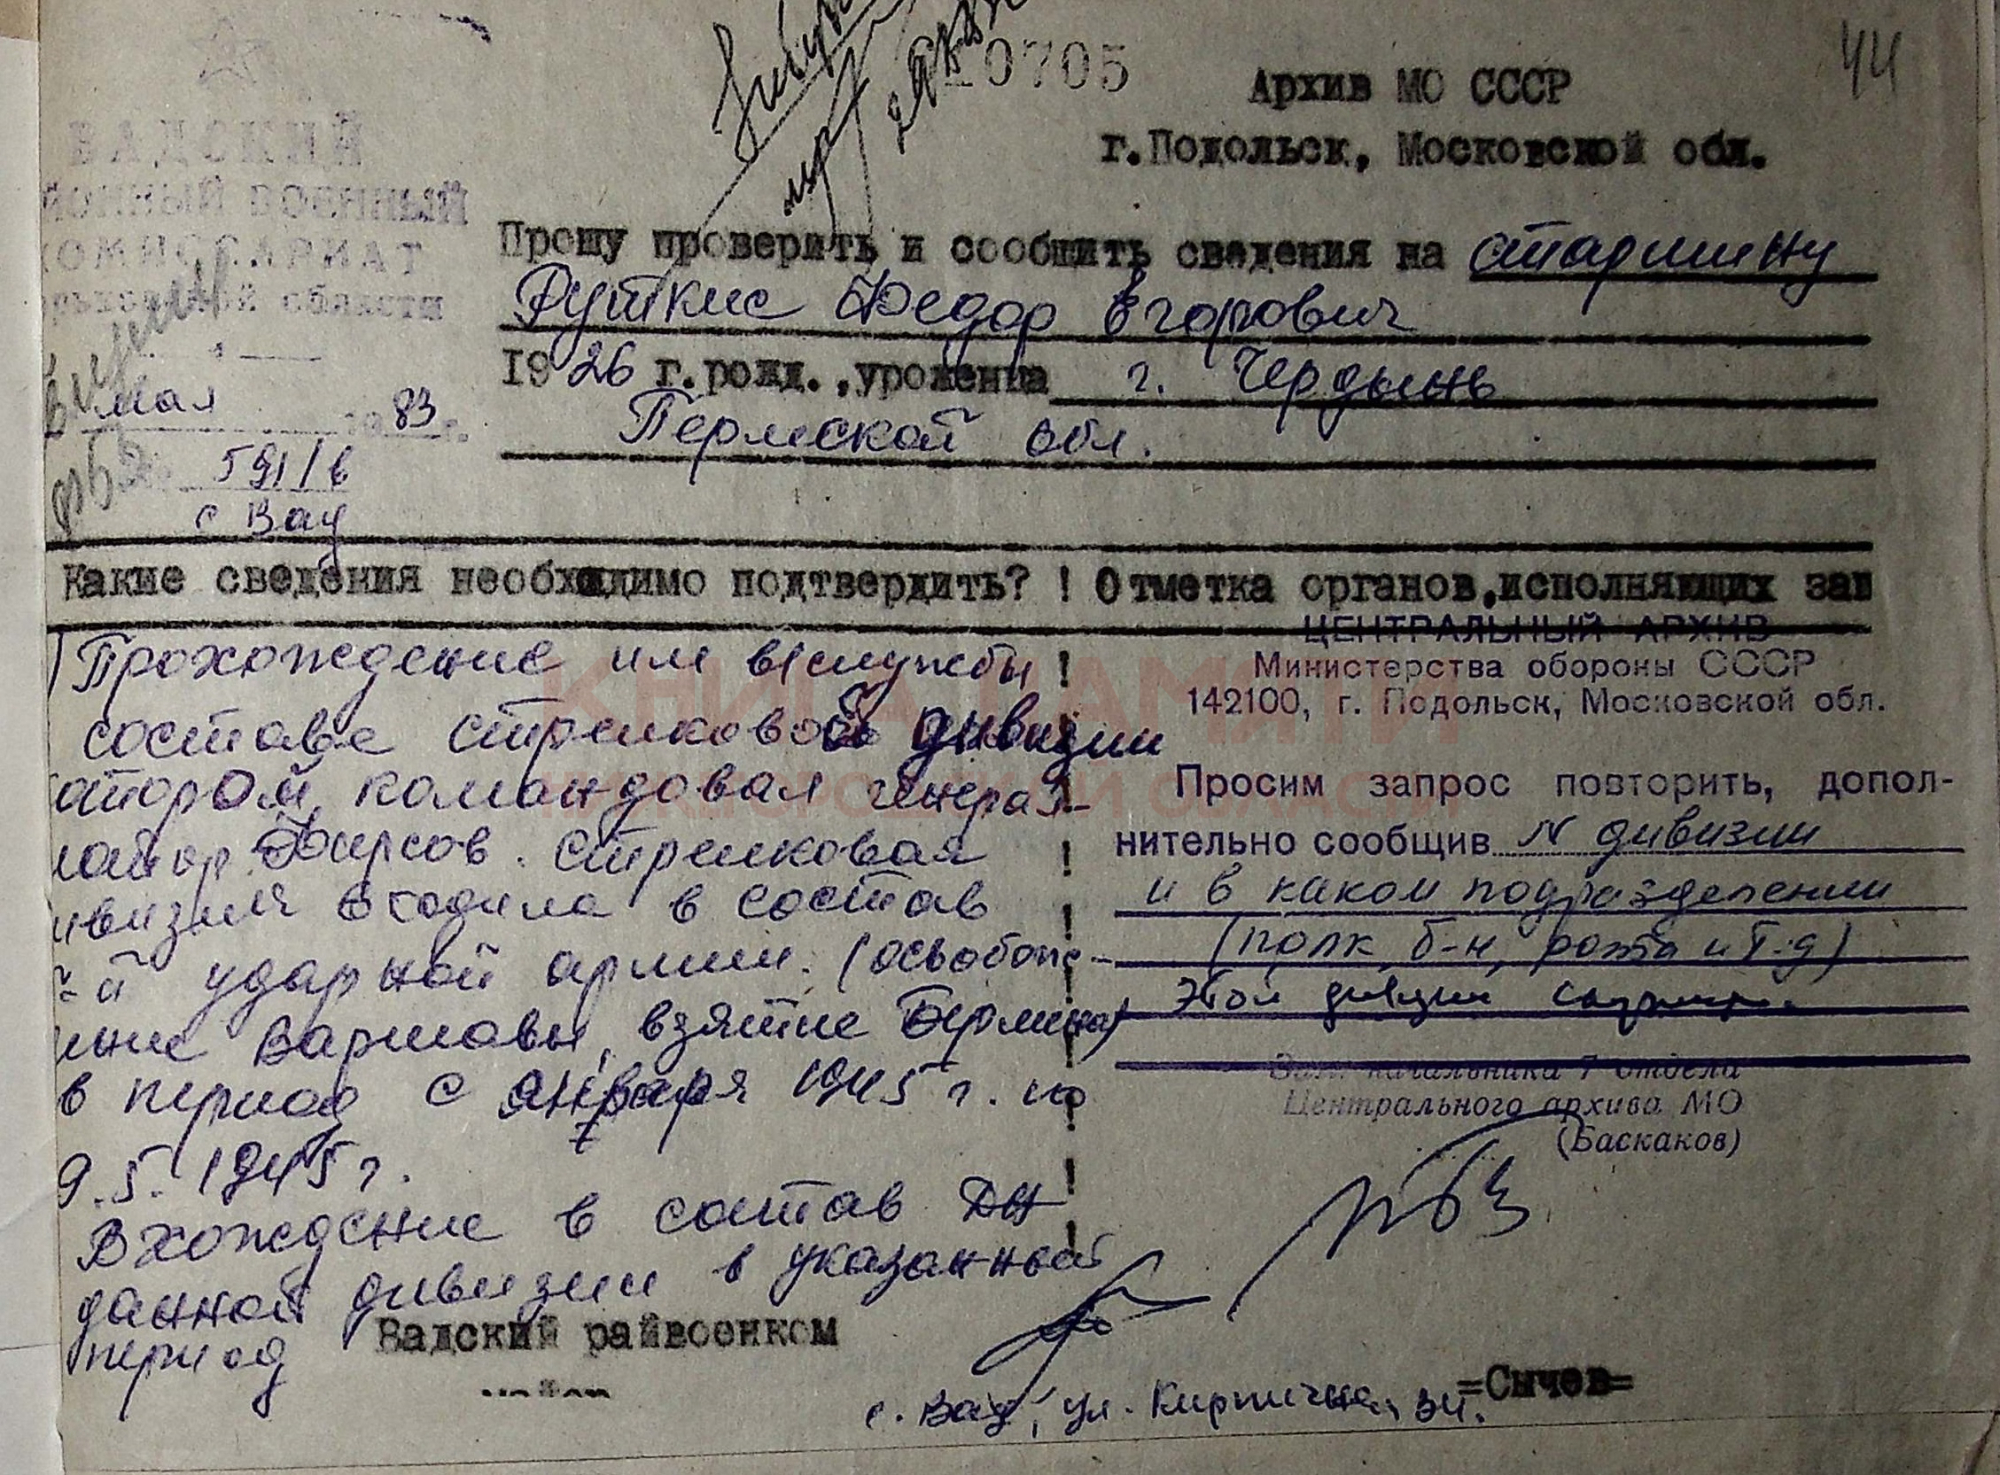 10705
44
Архив МО СССР
г.Подольск, Московской обл.
ВАДСКИЙ
ВОЕННЫЙ
КОМИССАРИАТ
области
мая 83 г.
591/в
с Вад
Прошу проверить и сообщить сведения на старшину
Руткис Федор Егорович
1926 г.рожд.,уроженца г. Чердынь
Пермской обл.
Какие сведения необходимо подтвердить? ! Отметка органов,исполняющих зап
Прохождение им в/службы
составе стрелковой дивизии
которой командовал генерал-
майор Фирсов. Стрелковая
дивизия входила в состав
й ударной армии. (освобожде-
ние Варшавы, взятие Берлина)
в период с января 1945 г. по
9.5.1945 г.
Вхождение в состав ДН
данной дивизии в указанный
период
Вадский райвоенком
майор
=Сычев=
с. Вад, ул. Кирпичная 34.
ЦЕНТРАЛЬНЫЙ АРХИВ
Министерства обороны СССР
142100, г. Подольск, Московской обл.
Просим запрос повторить, допол-
нительно сообщив N дивизии
и в каком подразделении
(полк, б-н, рота и т.д)
этой дивизии
Зам. начальника 7 отдела
Центрального архива МО
(Баскаков)
КНИГА ПАМЯТИ
НИЖЕГОРОДСКОЙ ОБЛАСТИ